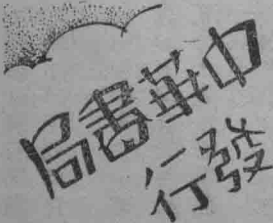 中華書局
發行